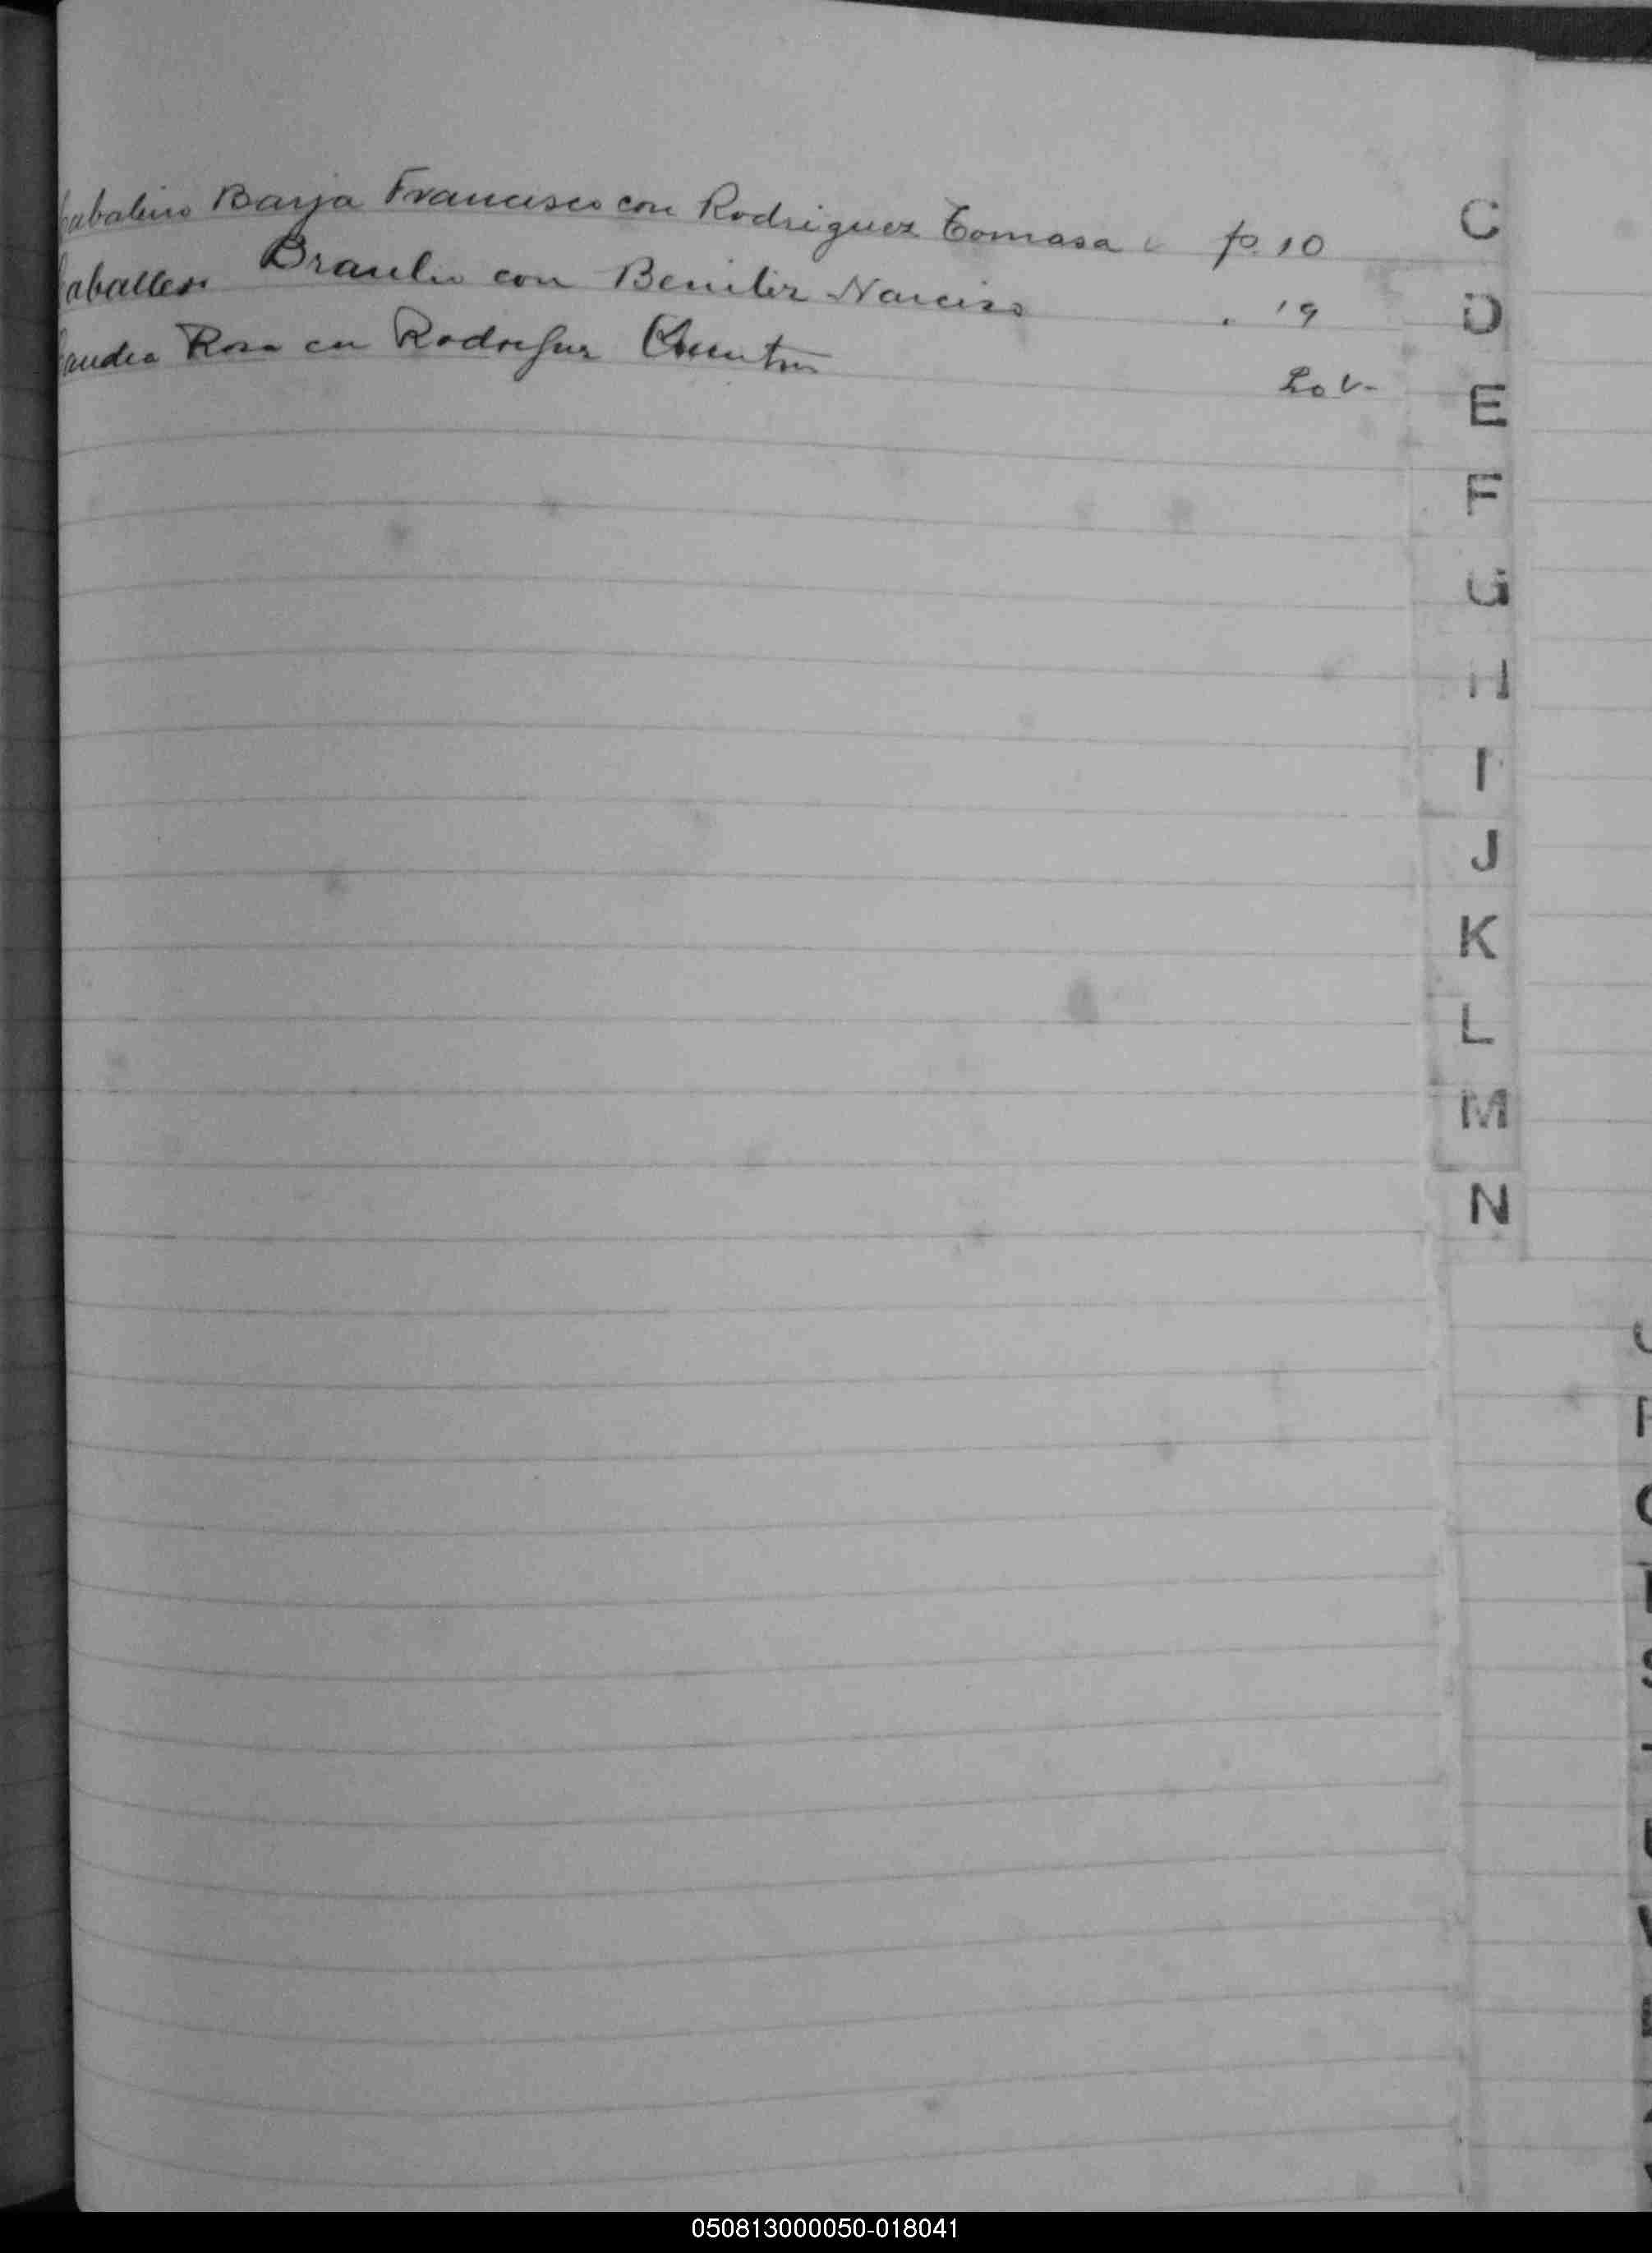 Cabaleiro Barja Francisco con Rodriguez Tomasa fo. 10
Caballero Braulio con Benitez Narciso . 19
Rosa con Rodriguez 20 v-
C
D
E
F
G
H
I
J
K
L
M
N
050813000050-018041